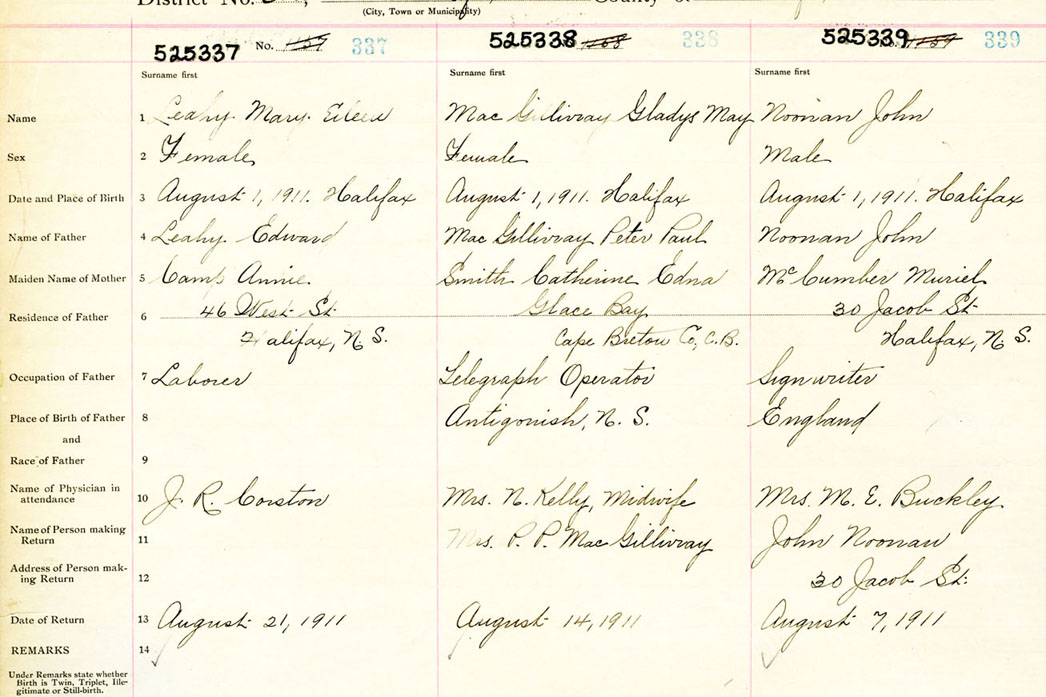 District No.
County of
(City, Town or Municipality)
525337 No. 337
525338 338
525339 No. 339
Surname first Surname first Surname first
Name 1 Leahy. Mary. Eileen Mac Gillivray Gladys May Noonan John
Sex 2 Female Female Male
Date and Place of Birth 3 August 1, 1911. Halifax August 1, 1911. Halifax August 1, 1911. Halifax
Name of Father 4 Leahy. Edward Mac Gillivray Peter Paul Noonan John
Maiden Name of Mother 5 Camp Annie. Smith Catherine Edna McCumber Muriel
Residence of Father 6 46 West St. Glace Bay 30 Jacob St.
Halifax, N. S. Cape Breton Co, C.B. Halifax, N. S.
Occupation of Father 7 Laborer Telegraph Operator Sign writer
Place of Birth of Father 8 Antigonish, N. S. England
and
Race of Father 9
Name of Physician in
attendance 10 J. R. Corston Mrs. N. Kelly, Midwife Mrs. M. E. Buckley
Name of Person making
Return 11 Mrs. P. P. Mac Gillivray John Noonan
Address of Person mak-
ing Return 12 30 Jacob St.
Date of Return 13 August 21, 1911 August 14, 1911 August 7, 1911
REMARKS 14
Under Remarks state whether
Birth is Twin, Triplet, Ille-
gitimate or Still-birth.